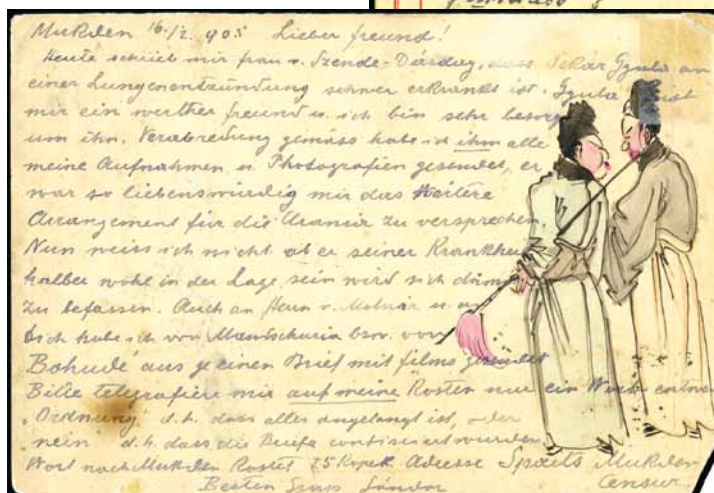 Mukden 16./2. 905 Lieber freund!
Heute schrieb mir frau v. Szende-Dárday, dass Pekár Gyula an
einer Lungenentzündung schwer erkrankt ist. Gyula ist
mir ein werther freund u. ich bin sehr besorg
um ihn. Verabredung gemäss habe ich ihm alle
meine Aufnahmen u. Photografien gesendet, er
war so liebenswürdig mir das Weitere
Arrangement für die Urania zu versprechen.
Nun weiss ich nicht ob er seiner Krankhei
halber wohl in der Lage sein wird sich dam
zu befassen. Auch an Herrn v. Molnár u. an
Dich habe ich von Mantschuria bzw. von
Bohudé aus je einen Brief mit films gesendet
Bitte telegrafiere mir auf meine Kosten nur ein Wort entwe
"Ordnung" d.h. dass alles angelangt ist, oder
"nein" d.h. dass die Briefe confisciert wurden.
Wort nach Mukden Kostet 75 Kopek. Adresse Spaits Mukden
Besten Gruss Sándor Censur.